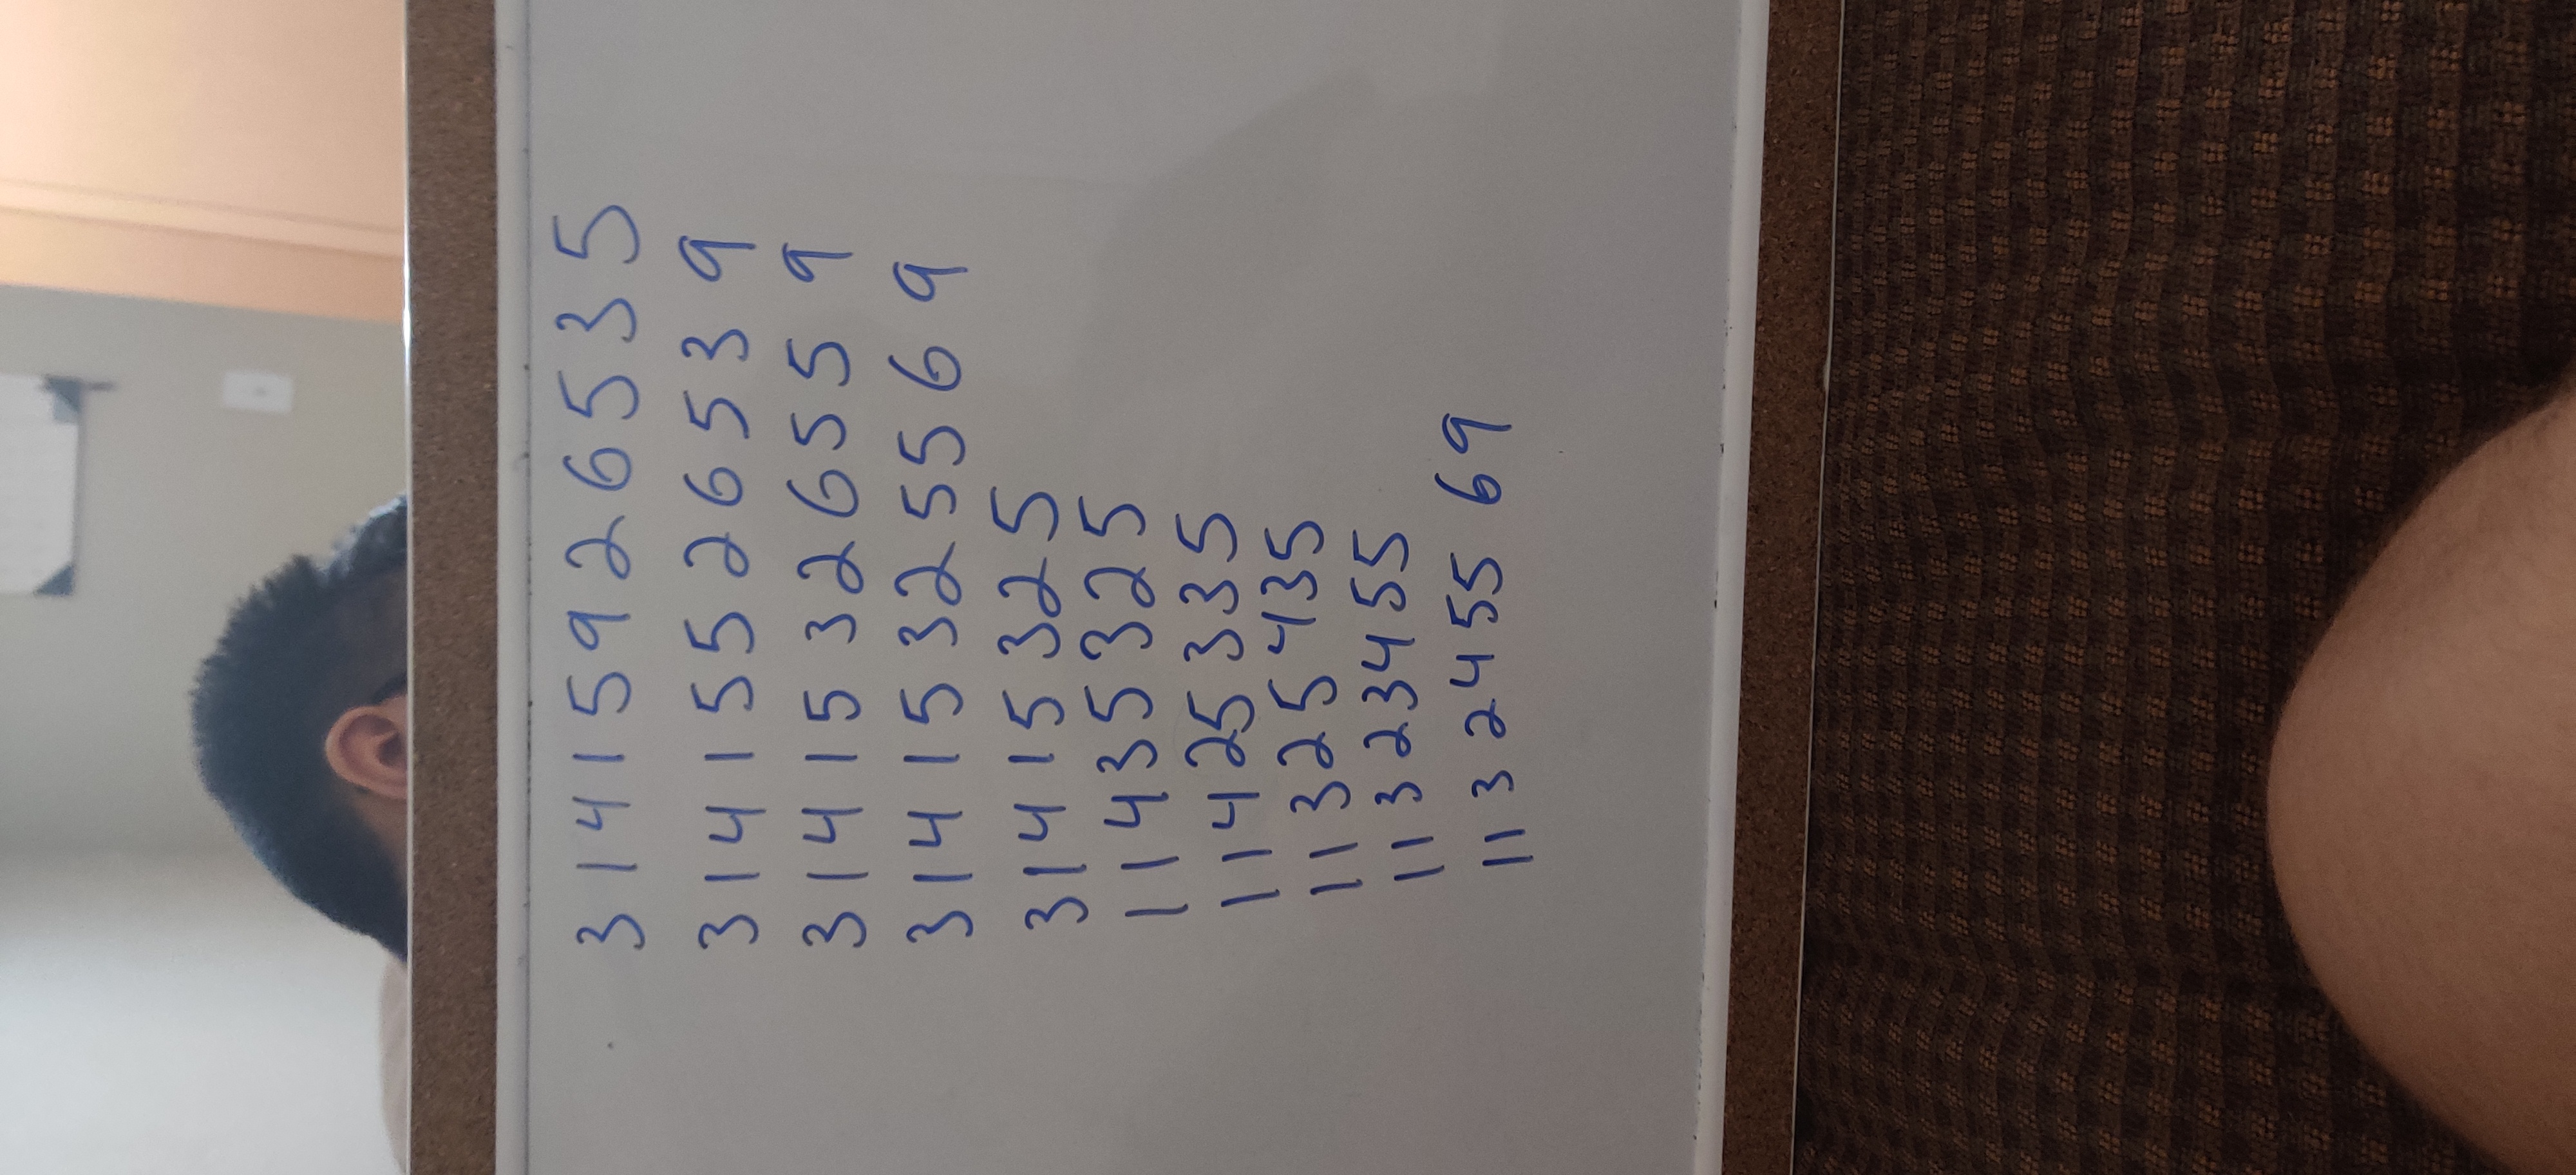 3 1 4 1 5 9 2 6 5 3 5
3 1 4 1 5 5 2 6 5 3 9
3 1 4 1 5 3 2 6 5 5 9
3 1 4 1 5 3 2 5 5 6 9
3 1 4 1 5 3 2 5
1 1 4 3 5 3 2 5
1 1 4 2 5 3 3 5
1 1 3 2 5 4 3 5
1 1 3 2 3 4 5 5
1 1 3 2 4 5 5 6 9